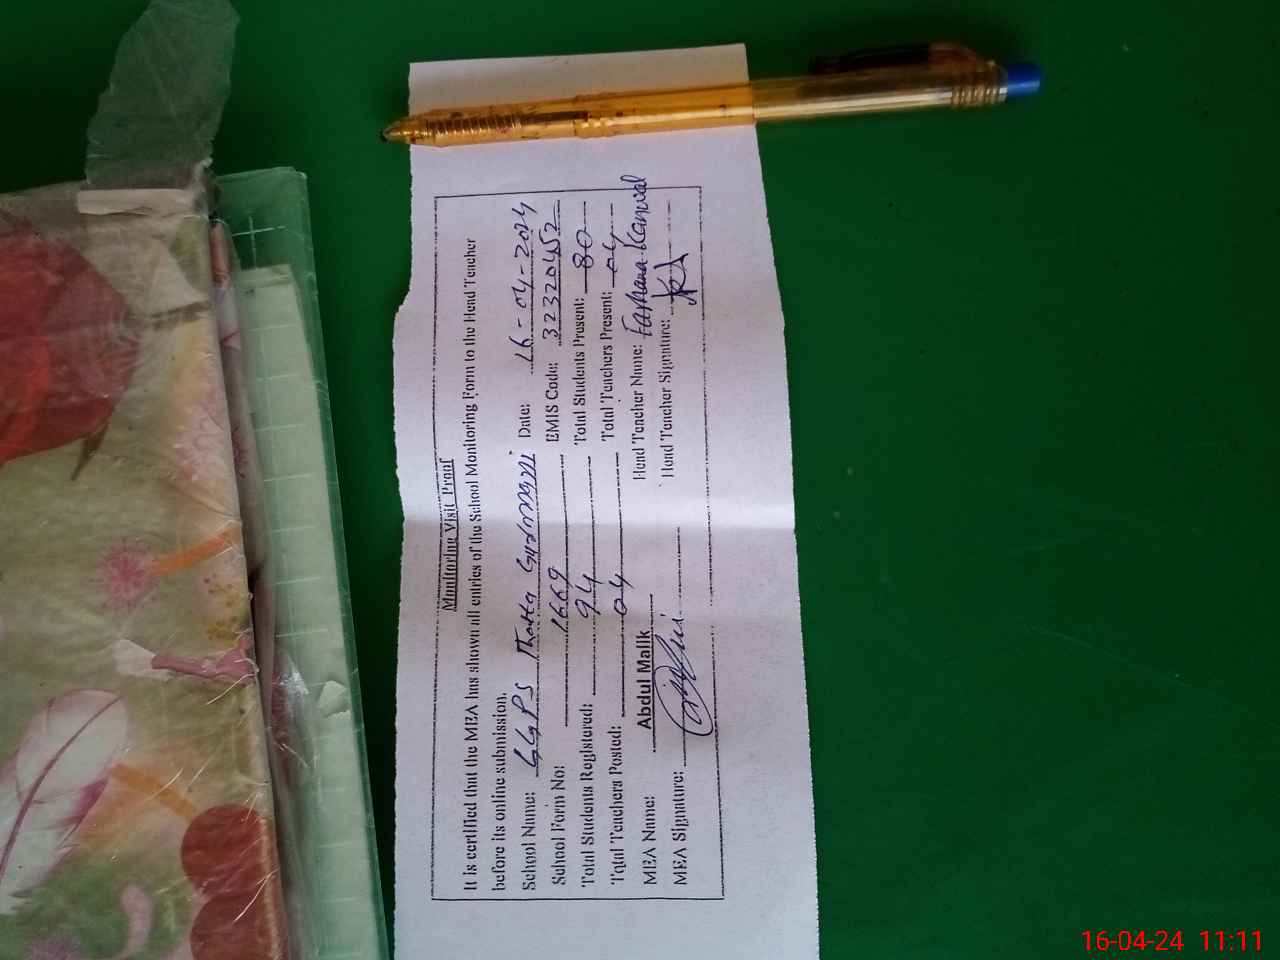 Monitoring Visit Proof
It is certified that the MEA has shown all entries of the School Monitoring Form to the Head Teacher
before its online submission.
School Name: GGPS Thatta Gurmani Date: 16-04-2024
School Form No: 1669 EMIS Code: 32320452
Total Students Registered: 94 Total Students Present: 80
Total Teachers Posted: 04 Total Teachers Present: 04
MEA Name: Abdul Malik Head Teacher Name: Farhana Kanwal
MEA Signature: Head Teacher Signature:
16-04-24 11:11